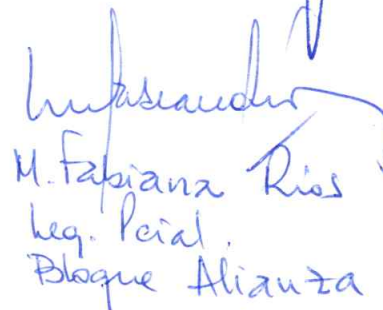 M. Fabiana Ríos
Leg. Pcial.
Bloque Alianza